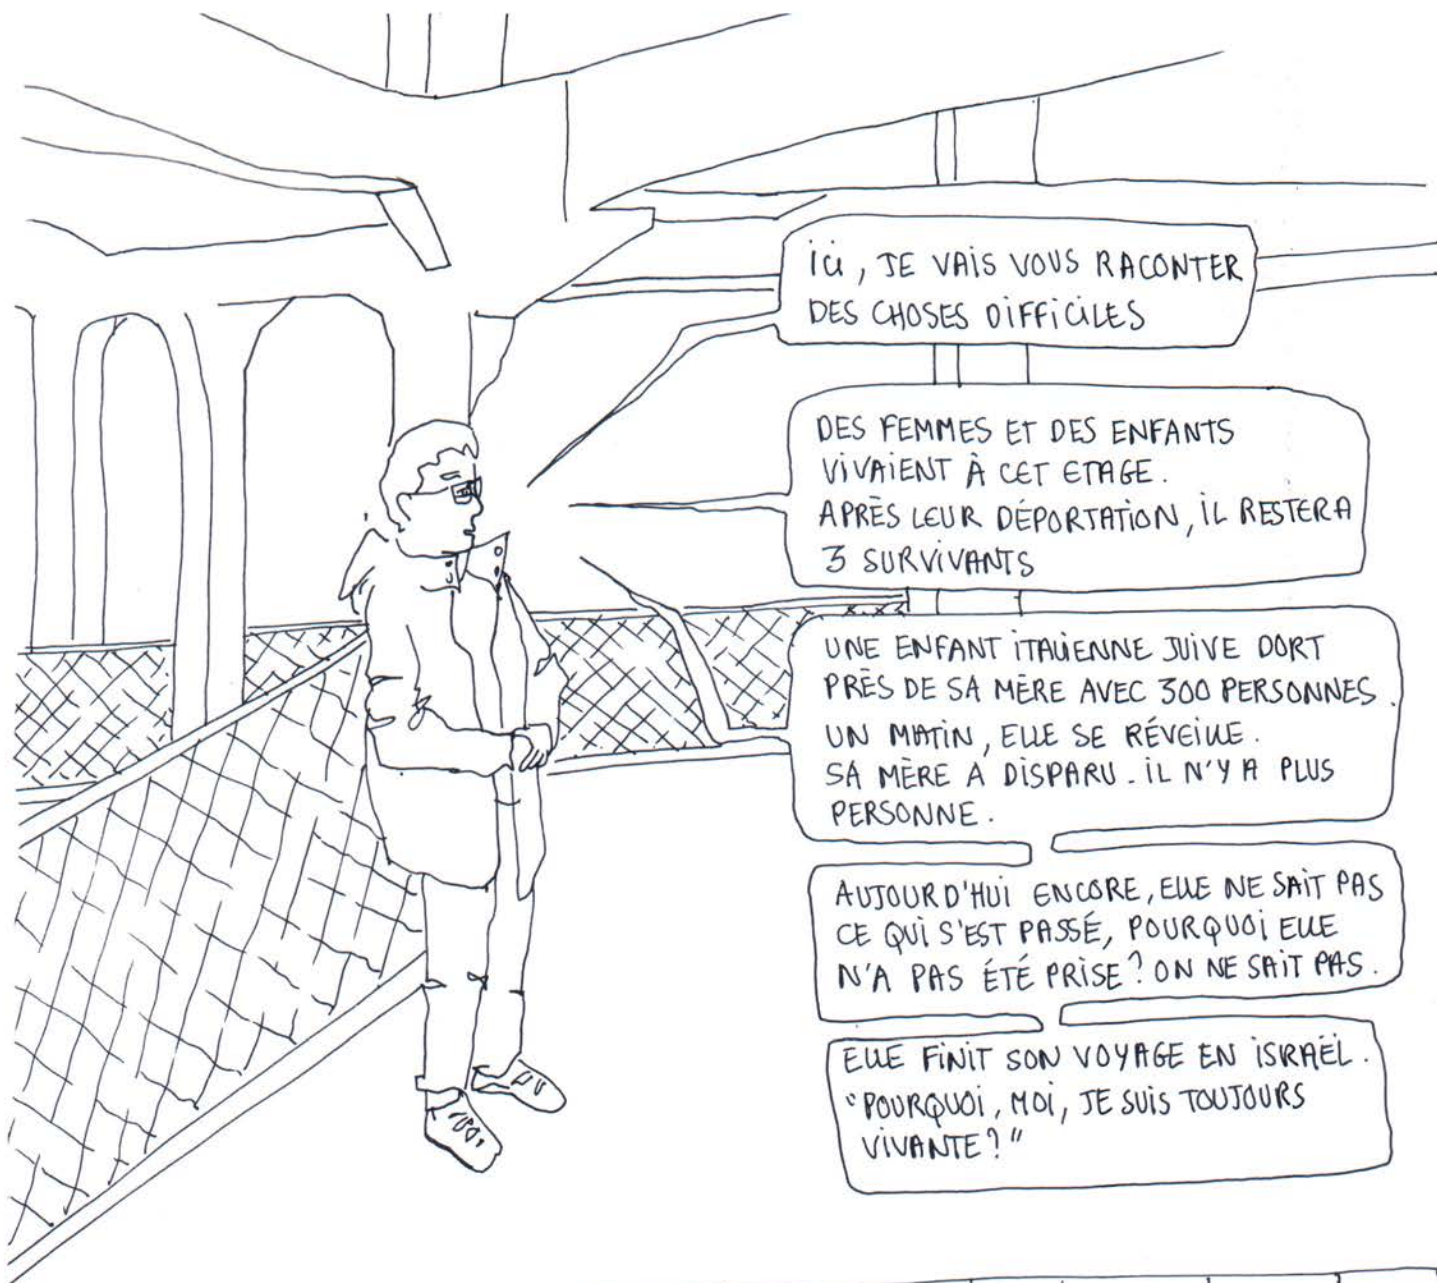 ici, JE VAIS VOUS RACONTER
DES CHOSES DIFFICILES
DES FEMMES ET DES ENFANTS
VIVAIENT À CET ETAGE.
APRÈS LEUR DÉPORTATION, IL RESTERA
3 SURVIVANTS
UNE ENFANT ITALIENNE JUIVE DORT
PRÈS DE SA MÈRE AVEC 300 PERSONNES.
UN MATIN, ELLE SE RÉVEILLE.
SA MÈRE A DISPARU. IL N'Y A PLUS
PERSONNE.
AUJOURD'HUI ENCORE, ELLE NE SAIT PAS
CE QUI S'EST PASSÉ, POURQUOI ELLE
N'A PAS ÉTÉ PRISE? ON NE SAIT PAS.
ELLE FINIT SON VOYAGE EN ISRAËL.
"POURQUOI, MOI, JE SUIS TOUJOURS
VIVANTE?"